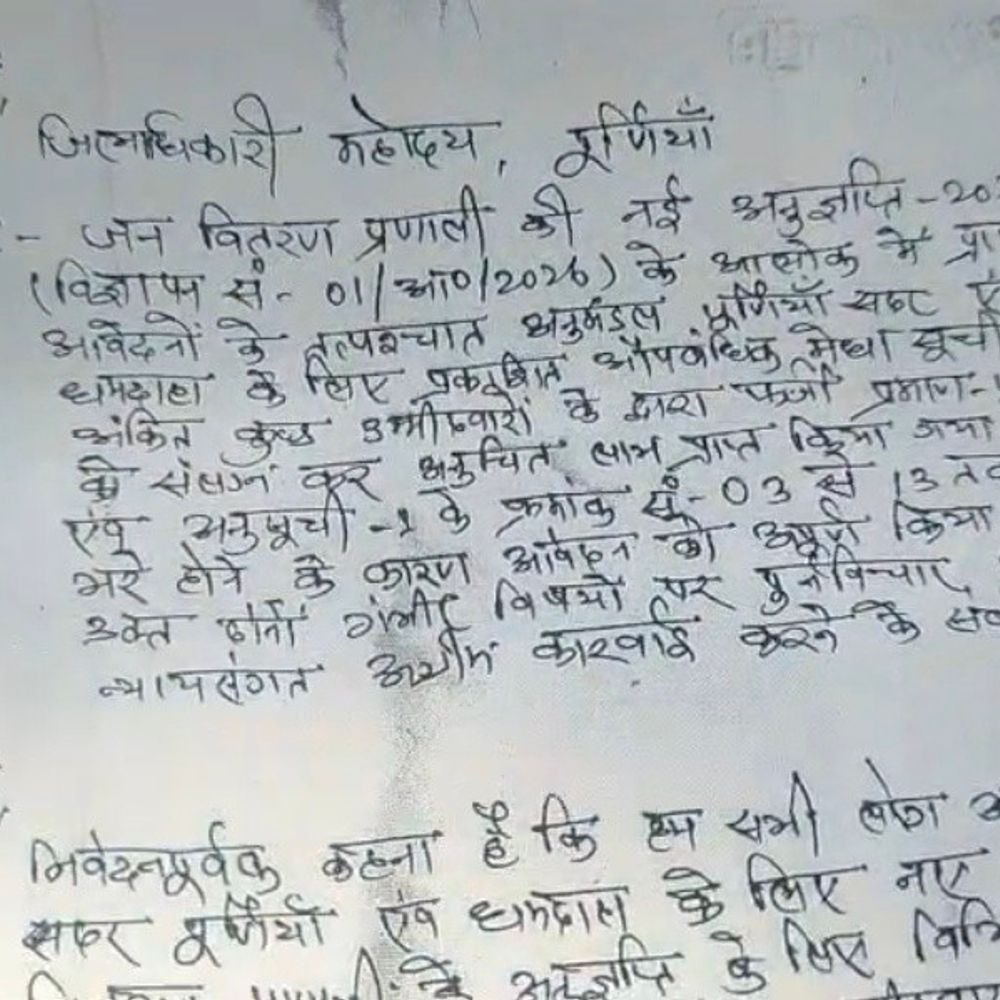 जिलाधिकारी महोदय, पूर्णियाँ
- जन वितरण प्रणाली की नई अनुज्ञप्ति-20
(विज्ञापन सं- 01/आ0/2026) के आलोक में प्रा
आवेदनों के तत्पश्चात अनुमंडल पूर्णियाँ सदर ए
धमदाहा के लिए प्रकाशित औपबंधिक मेधा सूची
अंकित कुछ उम्मीदवारों के द्वारा फर्जी प्रमाण-
को संलग्न कर अनुचित लाभ प्राप्त किया गया
एंव अनुसूची-1 के क्रमांक सं- 03 से 13 तक
भरे होने के कारण आवेदन को अपूर्ण किया
उक्त दोनों गंभीर विषयों पर पुर्नविचार
न्यायसंगत अग्रीम कारवाई करने के संब
निवेदनपूर्वक कहना है कि हम सभी लोग अ
सदर पूर्णियाँ एंव धमदाहा के लिए नए
के अनुज्ञप्ति के लिए